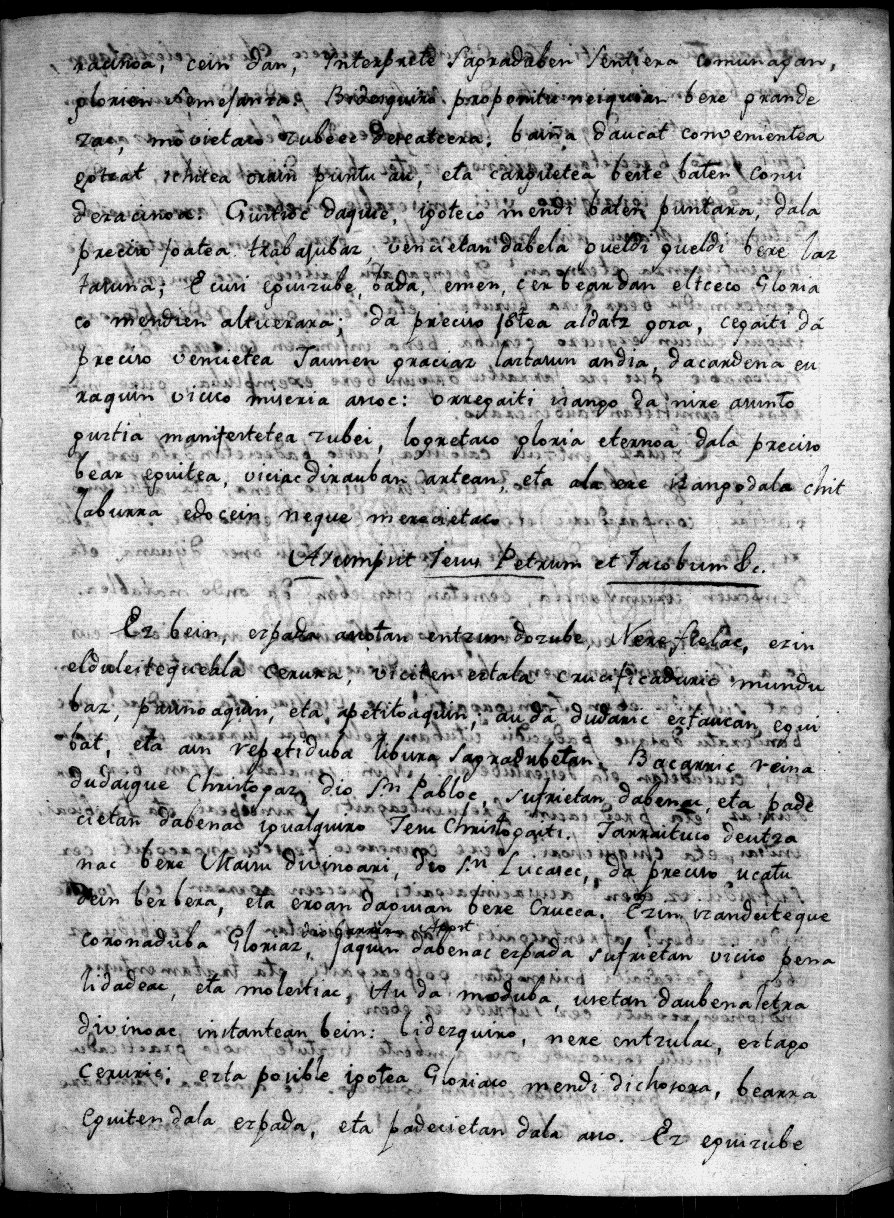 racinoa, cein dan, Interprete Sagraduben Sentiera comunagan,
glorien semejanza. Biderquiro proponitu neiquian bere grande
zac, movietaco zubeec dereatcera; baina daucat convenientea
gotzat, ichitea orain puntu au, eta carguetea beste baten consi
deracinoa. Guitioc daquie, igoteco mendi baten puntara, dala
preciso joatea trabajubaz, vencietan dabela gueldi gueldi bere laz
tasuna; Ecusi eguizube, bada, emen, cer bear dan elceco Gloria
co mendien altuerara, da preciso igotea aldatz gora, cegaiti da
preciso vencietea Jaunen graciaz laztasun andia, dacardena eu
raquin vicico miseria asoc: orregaiti izango da nire asunto
guztia manifestetea zubei, logretaco gloria eternoa dala preciso
bear eguitea, viciac dirauban artean, eta ala ere izango dala chit
laburra edocein neque merecietaco
Assumpsit Jesus Petrum et Jacobum &c.
Ez bein, ezpada ascotan entzun dozube, Nere fielac, ezin
elduleitequebla cerura, viciten ezta crucificaduric mundu
baz, pasinoaquin, eta apetitoaquin, au da dudaric eztaucan egui
bat, eta ain repetiduba libura Sagradubetan. Bacarric reina
dudaigue Christogaz, dio Sn Pabloc, sufrietan dabenac, eta pade
cietan dabenac igualquiro Jesu Christogaiti. Jarraituco deutza
nac bere Maisu divinoari, dio Sn Lucasec, da preciso ucatu
dein ber bera, eta eroan daguian bere Crucea. Ezin izandeiteque
coronaduba Gloriaz, jaquin dabenac ezpada sufrietan vicico pena
lidadeac, eta molestiac, Au da moduba, usetan daubena letra
divinoac instantean bein: biderquiro, nere entzulac, eztago
ceruric; ezta posible igotea Gloriaco mendi dichosora, bearra
eguiten dala ezpada, eta padecietan dala aso. Ez eguizube